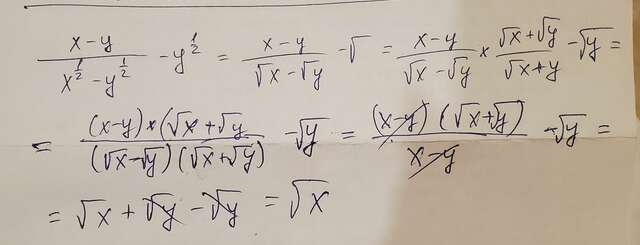 (x-y)/(x^(1/2) - y^(1/2)) - y^(1/2) = (x-y)/(√x - √y) - √ = (x-y)/(√x - √y) × (√x + √y)/(√x + y) - √y =
= (x-y)×(√x + √y/(√x - √y)(√x + √y) - √y = (x-y)(√x + √y)/(x-y) - √y =
= √x + √y - √y = √x